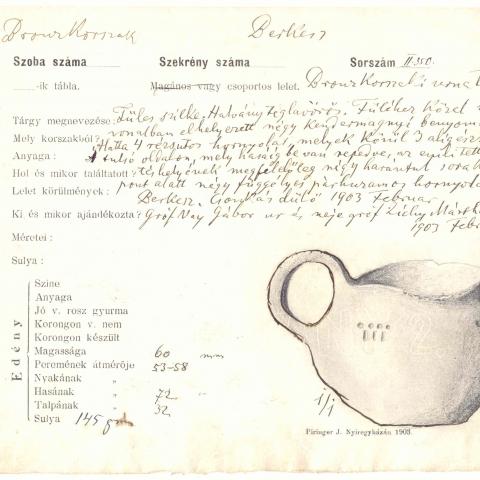 Bronz Korszak Berkesz
Szoba száma Szekrény száma Sorszám II.350.
-ik tábla. Magános vagy csoportos lelet. Bronz Korszaki
Tárgy megnevezése: Füles szilke. Halvány téglavörös. Füléhez közel
vonalban elhelyezett négy kendermagnyi
Mely korszakból? Hatta 4 rézsutos hornyolat, melyek körül 3
Anyaga: A tulsó oldalon, mely hasáig le van repedve, az emlitett
Hol és mikor találtatott? helyének megfelelőleg négy harantul
pont alatt négy függélyes párhuzamos
Lelet körülmények: Berkesz. dülő 1903 Februar
Ki és mikor ajándékozta? Gróf Vay Gábor ur és neje gróf Zichy
1903
Méretei:
Sulya:
Edény
Szine
Anyaga
Jó v. rosz gyurma
Korongon v. nem
Korongon készült
Magassága 60 mm
Peremének átmérője 53-58
Nyakának "
Hasának " 72 "
Talpának " 32
Sulya 145 g
1/1
Piringer J. Nyiregyházán 1903.